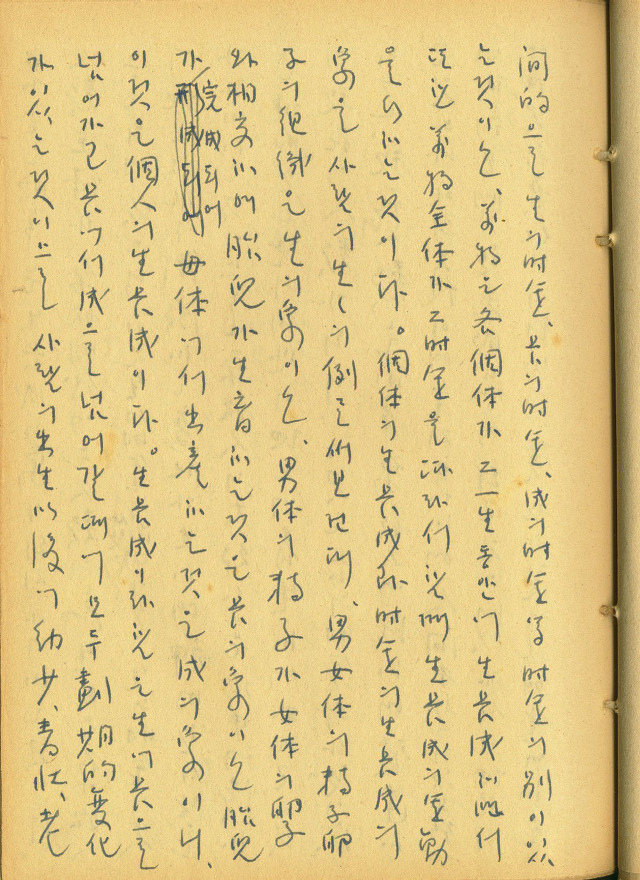 間的으로 生의時金、長의時金、成의時金等 時金의 別이 있
는것이고、萬物은 各個体가 그一生동안에 生長成하며서
또한 萬物全体가 그時金을 따라서 한때 生長成의 金動
을 하는것이다。個体의生長成과 時金의生長成의
象은 사람의 生長의 例를 써보건대、男女体의 精子卵
子의 組織은 生의象이고、男体의 精子가 女体의 卵子
와 相交하여 胎兒가 生育하는것은 長의象이고 胎兒
가 完成되어 母体에서 出產하는것은 成의象이니、
이것은 個人의生長成이다。生長成이라 함은 生에長으로
넘어가고 長에서 成으로 넘어갈때에 모두 劃期的變化
가 있는것이므로 사람의 出生以後에 幼少、靑壯、老